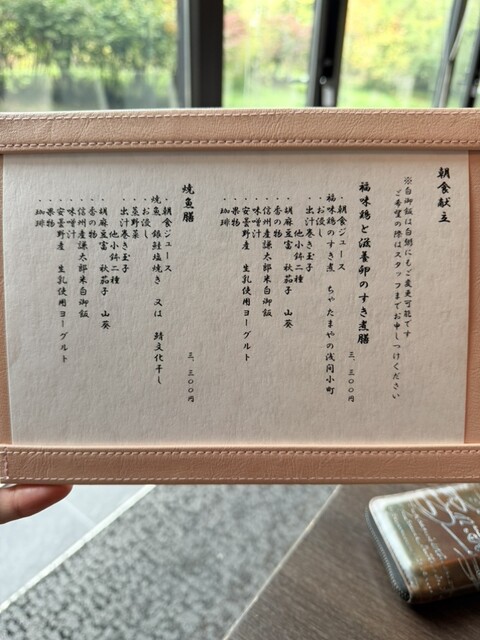 朝食献立
※白御飯は白粥にもご変更可能です
ご希望の際はスタッフまでお申しつけください
福味鶏と滋養卵のすき煮膳
三、三〇〇円
・朝食ジュース
・福味鶏のすき煮 ちゃたまやの浅間小町
・お浸し
・出汁巻き玉子
他小鉢二種
・胡麻豆富 秋茄子 山葵
・香の物
・信州産謙太郎米白御飯
・味噌汁
・安曇野産 生乳使用ヨーグルト
・果物
・珈琲
焼魚膳
三、三〇〇円
・朝食ジュース
・焼魚 銀鮭塩焼き 又は 鯖文化干し
・お浸し
・蒸野菜
・出汁巻き玉子
他小鉢二種
・胡麻豆富 秋茄子 山葵
・香の物
・信州産謙太郎米白御飯
・味噌汁
・安曇野産 生乳使用ヨーグルト
・果物
・珈琲